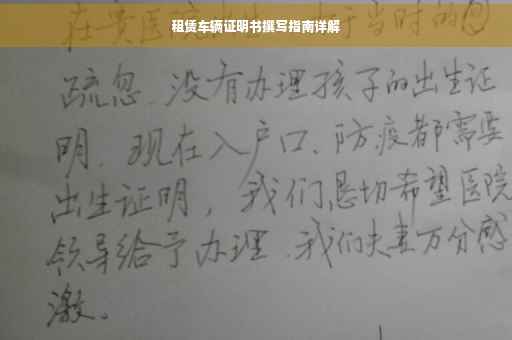 租赁车辆证明书撰写指南详解
在贵医院 于当时的
疏忽、没有办理孩子的出生证
明、现在入户口、防疫都需要
出生证明，我们恳切希望医院
领导给予办理、我们夫妻万分感
激。